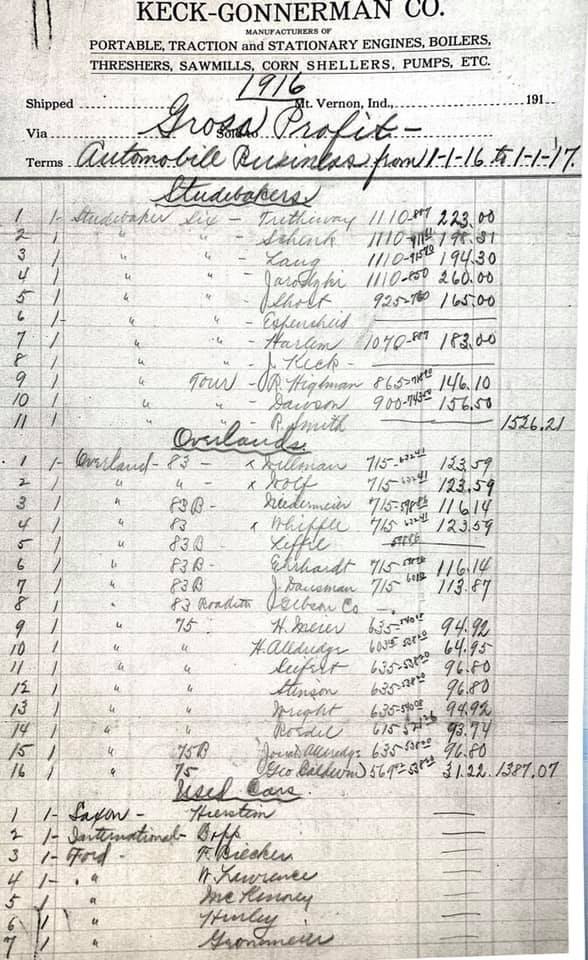 KECK-GONNERMAN CO.
MANUFACTURERS OF
PORTABLE, TRACTION and STATIONARY ENGINES, BOILERS,
THRESHERS, SAWMILLS, CORN SHELLERS, PUMPS, ETC.
1916
Shipped Mt. Vernon, Ind., 191
Via Sold to Gross Profit -
Terms Automobile Business from 1-1-16 to 1-1-'17.
Studebakers
1 1- Studebaker Six - Tretheway 1110-887 223.00
2 1 " " - Schenk 1110- 198.31
3 1 " " - Lang 1110- 194.30
4 1 " " - 1110-850 260.00
5 1 " " - Short 925-760 165.00
6 1- " " - Espenscheid
7 1 " " - Harlem 1070-887 183.00
8 1 " " - J. Keck -
9 1 " Tour - R. Highman 865- 146.10
10 1 " " - Dawson 900-743.50 156.50
11 1 " " - R. Smith 1526.21
Overlands.
1 1- Overland - 83 - x Willman 715- 123.59
2 1 " " - x Wolf 715- 123.59
3 1 " 83B - Niedermeier 715-598.86 116.14
4 1 " 83 x Whipple 715 123.59
5 1 " 83B - 598.86
6 1 " 83B - Ehrhardt 715 116.14
7 1 " 83B J. Dausman 715 113.87
8 1 " 83 Roadster Gibson Co -
9 1 " 75 H. Meier 635-540.08 94.92
10 1 " " H. Alldredge 64.95
11 1 " " Seifert 635-538.20 96.80
12 1 " " Stinson 635-538.20 96.80
13 1 " " Wright 635-540.08 94.92
14 1 " " 615 93.74
15 1 " 75B Alldredge 635 538.20 96.80
16 1 " 75 (Geo Baldwin) 31.22 1387.07
Used Cars.
1 1- Saxon - Hierstein
2 1- International - Bopp
3 1- Ford - F. Biecker
4 1- " W. Lawrence
5 1 " McKinney
6 1 "
7 1 " Gronemeier